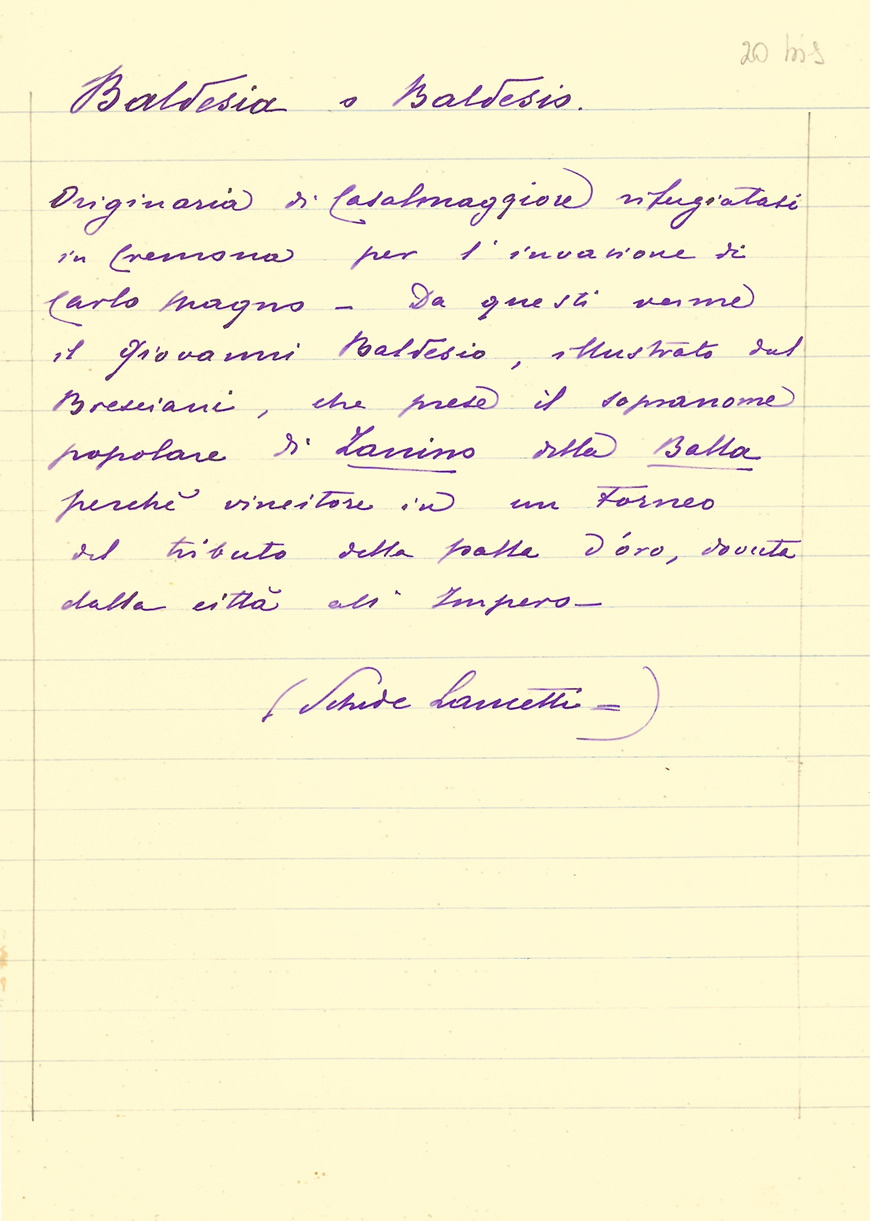 20 bis
Baldesia o Baldesio.
Originaria di Casalmaggiore rifugiatasi
in Cremona per l'invasione di
Carlo Magno – Da questi venne
il Giovanni Baldesio, illustrato dal
Bresciani, che prese il sopranome
popolare di Zanino della Balla
perché vincitore in un Torneo
del tributo della palla d'óro, dovuta
dalla città all'Impero –
(Schede Lancetti =)